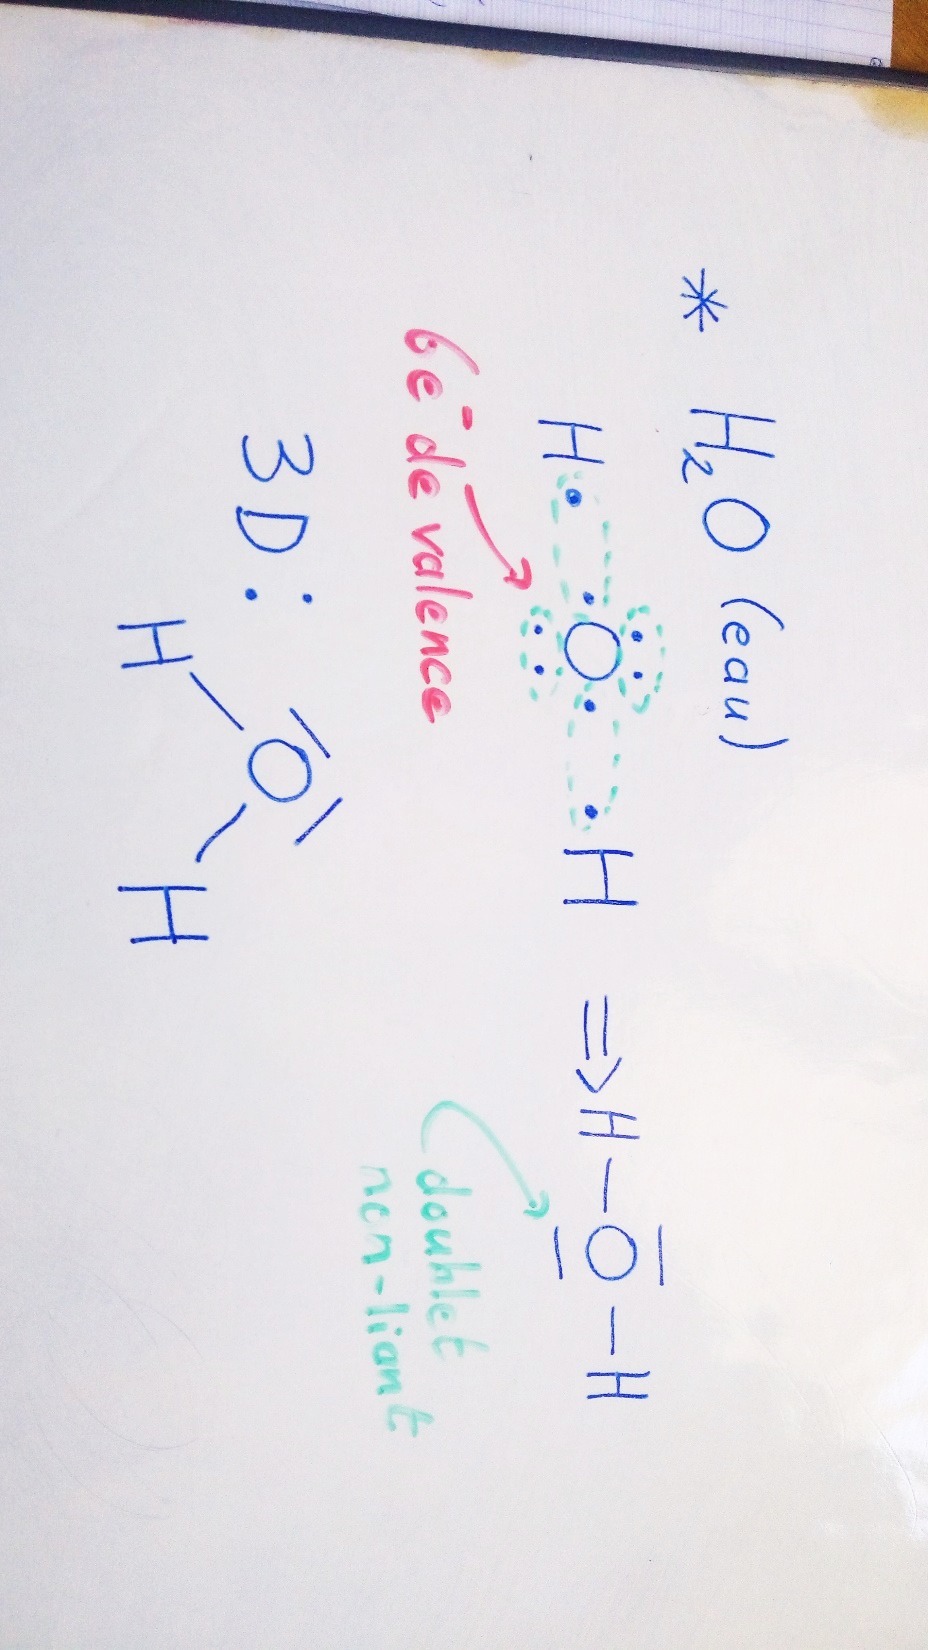 * H₂O (eau)
H· ·O· ·H ⇒ H–O–H
6e⁻ de valence
doublet
non-liant
3D : H O H